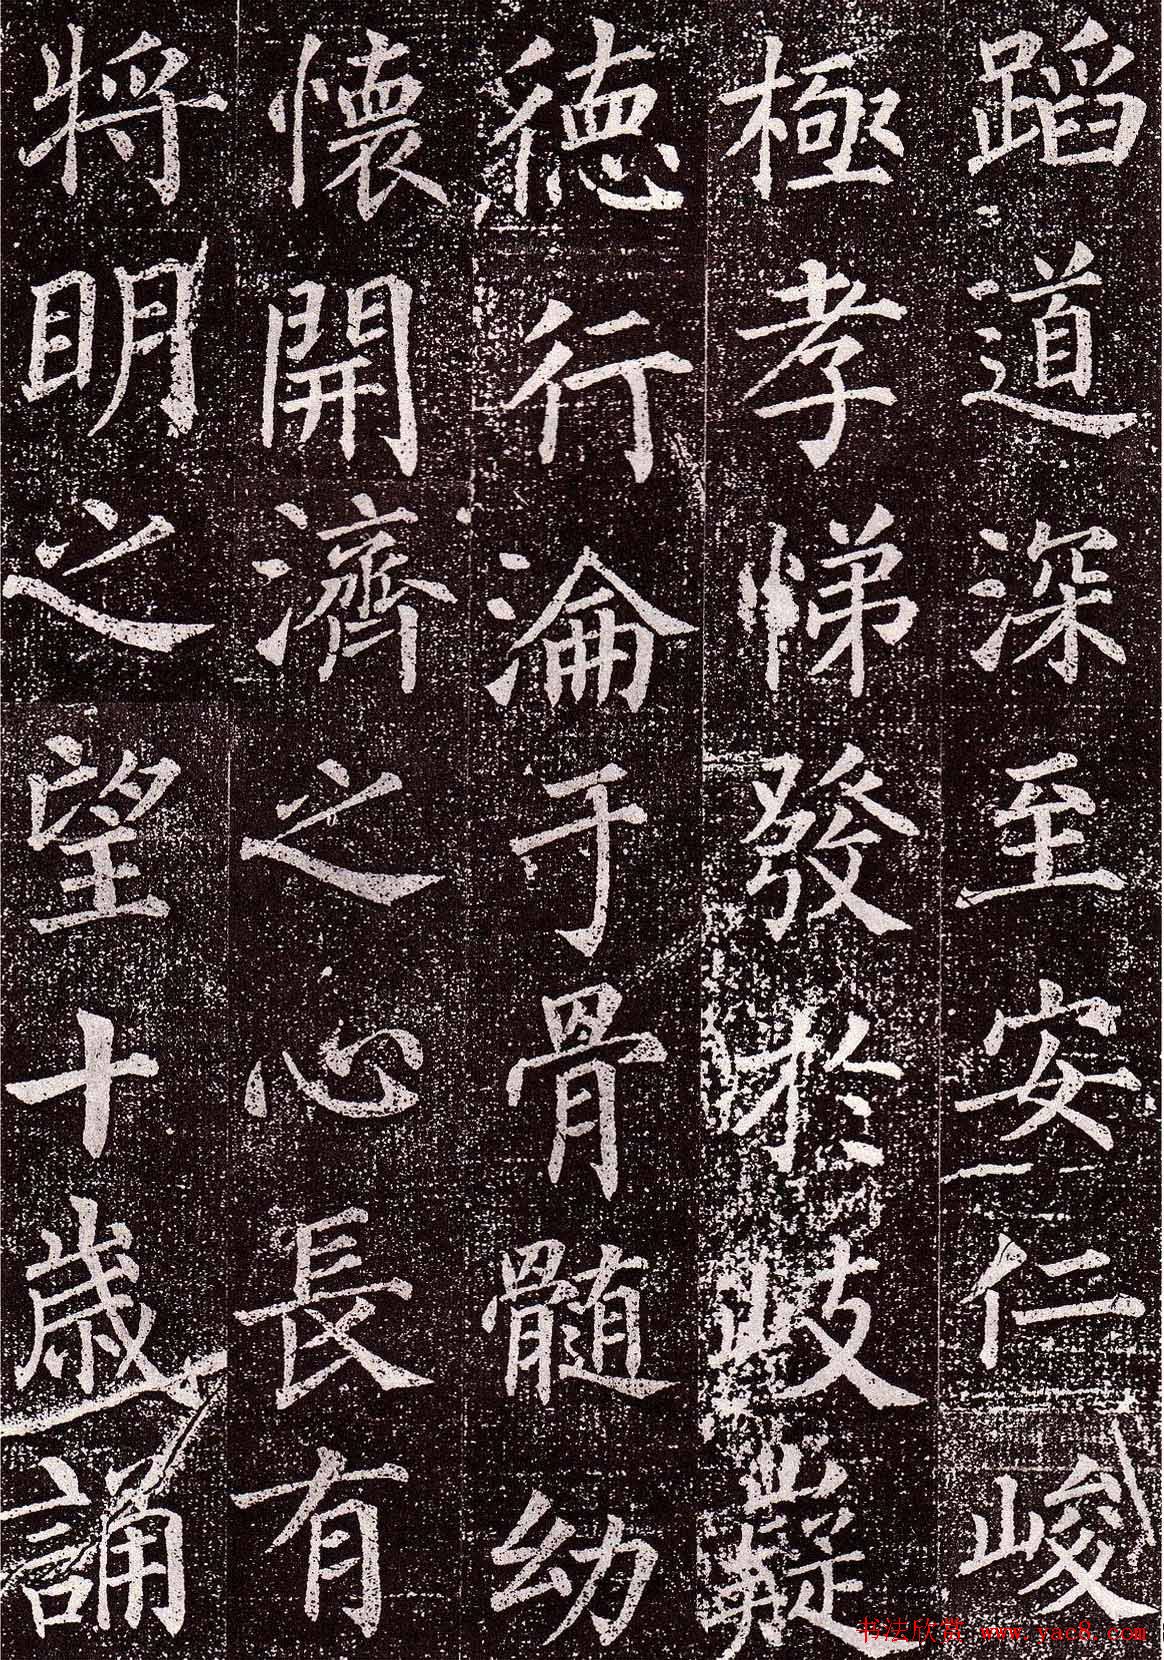 蹈道深至安仁峻
極孝悌發於岐嶷
德行淪于骨髓幼
懷開濟之心長有
將明之望十歲誦
书法欣赏 www.yac8.com